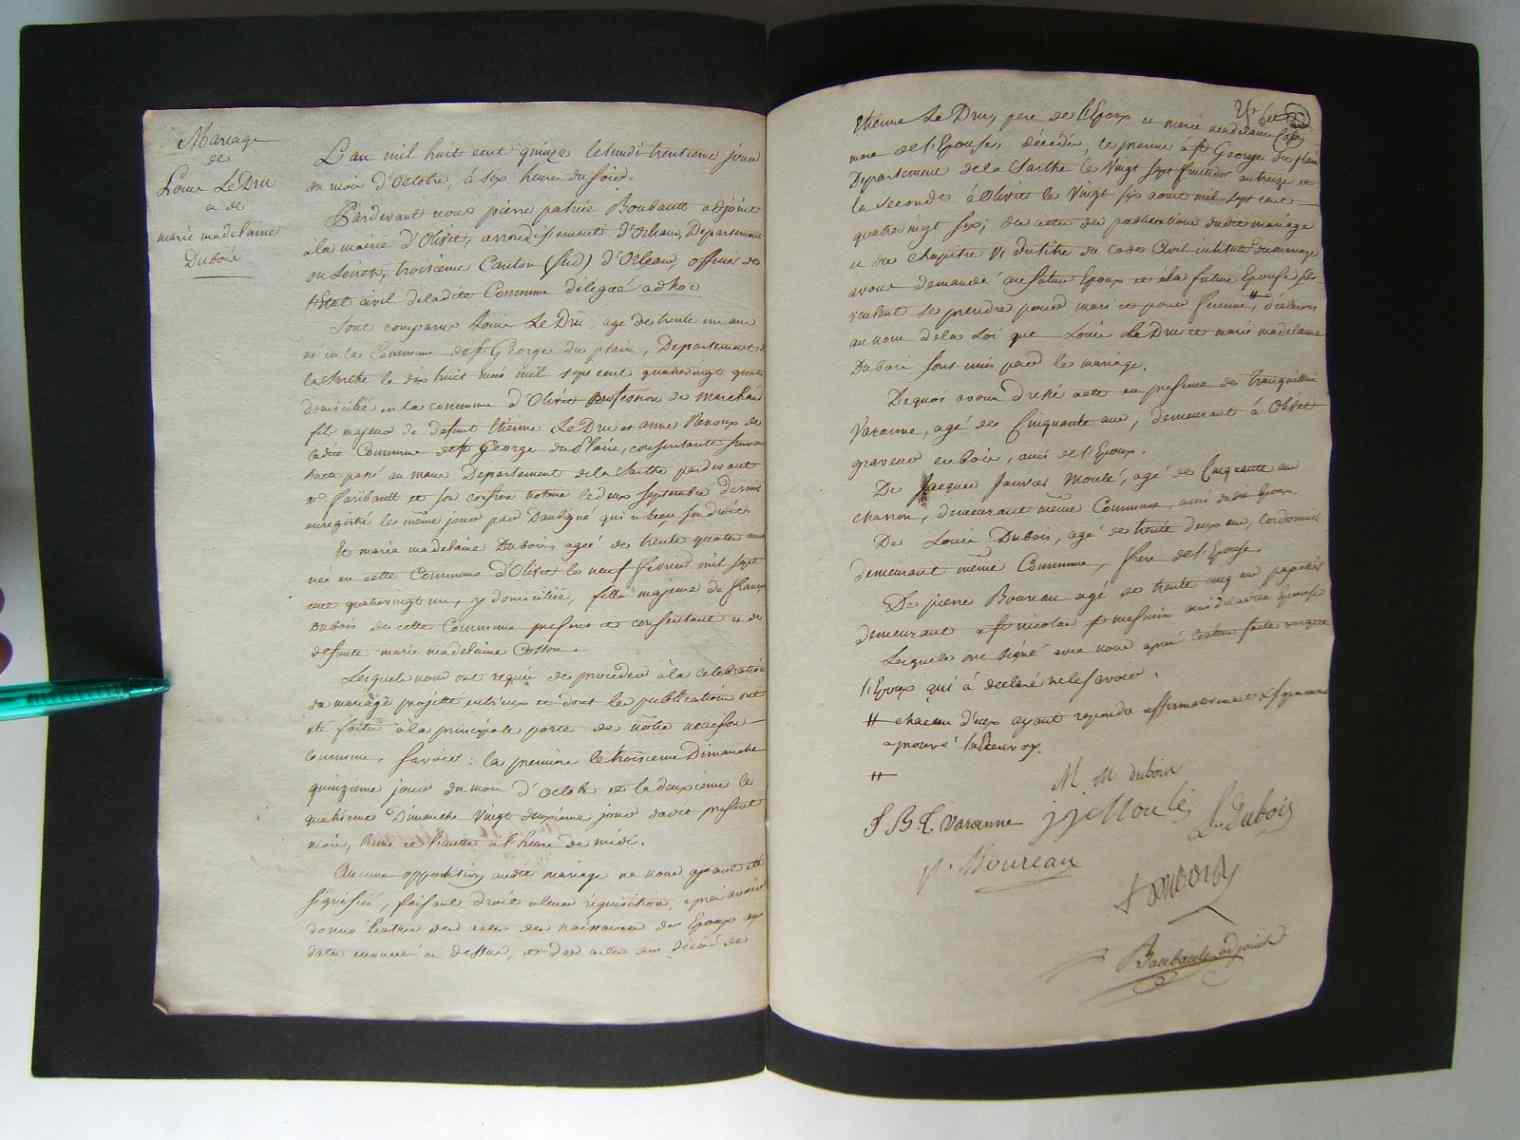 Mariage
de
Louis Le Dru
a de
marie madelaine
Dubois
L'an mil huit cent quinze le lundi trentieme jour
du mois d'Octobre, à six heures du soir.
Pardevant nous pierre patrice Boubault adjoint
à la mairie d'Olivet, arrondissement d'Orleans, Departement
du Loiret, troisieme Canton (Sud) d'Orleans, officier de
l'état civil de ladite Commune délégué ad hoc
Sont comparus Louis Le Dru, agé de trente un ans
né en la Commune de St George du plain, Departement de
la Sarthe le dix huit mai mil sept cent quatrevingt quatre
domicilié en la commune d'Olivet profession de marchand
fils majeur de defunt Etienne Le Dru et anne Renoux de
ladite Commune de St George du Plain, consentante suivant
acte passé au mans Departement de la Sarthe pardevant
Me faribault et son confrere notaire le deux Septembre dernier
enregistré le même jour par Daudigné qui a reçu les droits
Et marie madelaine Dubois agée de trente quatre ans
née en cette Commune d'Olivet le neuf fevrier mil sept
cent quatrevingt un, y domiciliée, fille majeure de françois
Dubois de cette Commune present et consentant et de
defunte marie madelaine Cosson.
Lesquels nous ont requis de proceder à la celebration
du mariage projetté entr'eux et dont les publications ont
été faites à la principale porte de nôtre maison
commune, savoir : la premiere le troisieme Dimanche
quinzieme jour du mois d'Octobre et la deuxieme le
quatrieme Dimanche vingt deuxieme jour dudit present
mois, l'une et l'autre à l'heure de midi.
Aucune opposition audit mariage ne nous ayant été
signifiée, faisant droit à leur requisition, après avoir
donné lecture des actes de naissances des Epoux aux
dates enoncées ci dessus, et des actes de décès de
Etienne Le Dru, pere de l'Epoux et marie madelaine Cosson
mere de l'Epouse, décédés, le premier à St George du plain
Departement de la Sarthe le Vingt sept fructidor an treize et
la Seconde à Olivet le Vingt six aout mil sept cent
quatrevingt six; des actes de publications dudit mariage
et du chapitre VI du titre du Code Civil intitulé du mariage
avons demandé au futur Epoux et à la future Epouse s'ils
veulent se prendre pour mari et pour femme, # déclarons
au nom de la Loi que Louis Le Dru et marie madelaine
Dubois sont unis par le mariage.
De quoi avons dressé acte en presence de tranquille
Varenne, agé de Cinquante ans, demeurant à Olivet
graveur en bois, ami de l'Epoux.
De Jacques Moulé, agé de Cinquante ans
charron, demeurant même Commune, ami dudit Epoux.
De Louis Dubois, agé de trente deux ans, Cordonnier
demeurant même Commune, frere de l'Epouse.
De pierre Boureau agé de trente cinq ans papetier
demeurant à St nicolas St mesmin ami de ladite Epouse
Lesquels ont signé avec nous après lecture faite excepté
l'Epoux qui a déclaré ne le savoir.
# chacun d'eux ayant repondu affirmativement
approuvé le Renvoy.
#
M M dubois
J B. T. Varenne
J J Moulé
L. Dubois
P. Boureau
f. Dubois
Boubault adjoint